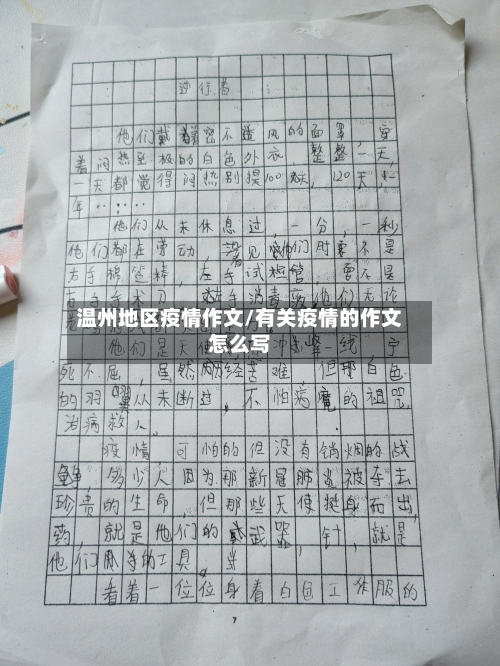 逆行者
他们戴着密不透风的面罩，穿
着闷热至极的白色外衣，整整一天，
一天都觉得闷热别提100天，120天，一
年……
他们从未休息过，一分，一秒
他们都在劳动，看见他们时要不是
右手棉签精，左手试棉管，要不是
右手手术刀，左手消毒液他们无论
温州地区疫情作文/有关疫情的作文
怎么写
他们是天使 冲 一线，宁
死不屈，虽然历经苦难 但那白色
的羽翼从未断过，不怕病魔的诅咒，
治病救人。
疫情 可怕的但没有销烟的战
多少人因为那新冠肺炎被夺去
珍贵的生命，但那些天使挺身而出，
药，就是他们的武器，针，就是
他们 手的工具，
看着一位位身着白色工作服的
7